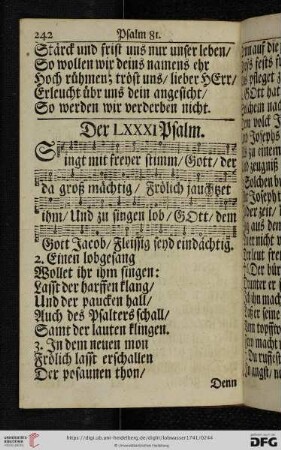 242 Psalm 81.
Stärck und frist uns nur unser leben/
So wollen wir deins namens ehr
Hoch rühmen; tröst uns/ lieber HErr/
Erleucht übr uns dein angesicht/
So werden wir verderben nicht.
Der LXXXI Psalm.
Singt mit freyer stimm/ Gott/ der
da groß mächtig/ Frölich jauchtzet
ihm/ Und zu singen lob/ GOtt/ dem
Gott Jacob/ Fleissig seyd eindächtig.
2. Einen lobgesang
Wollet ihr ihm singen:
Lasst der harffen klang/
Und der paucken hall/
Auch des Psalters schall/
Samt der lauten klingen.
3. In dem neuen mon
Frölich lasst erschallen
Der posaunen thon/
Denn
http://digi.ub.uni-heidelberg.de/diglit/lobwasser1741/0244
© Universitätsbibliothek Heidelberg
gefördert durch die
DFG